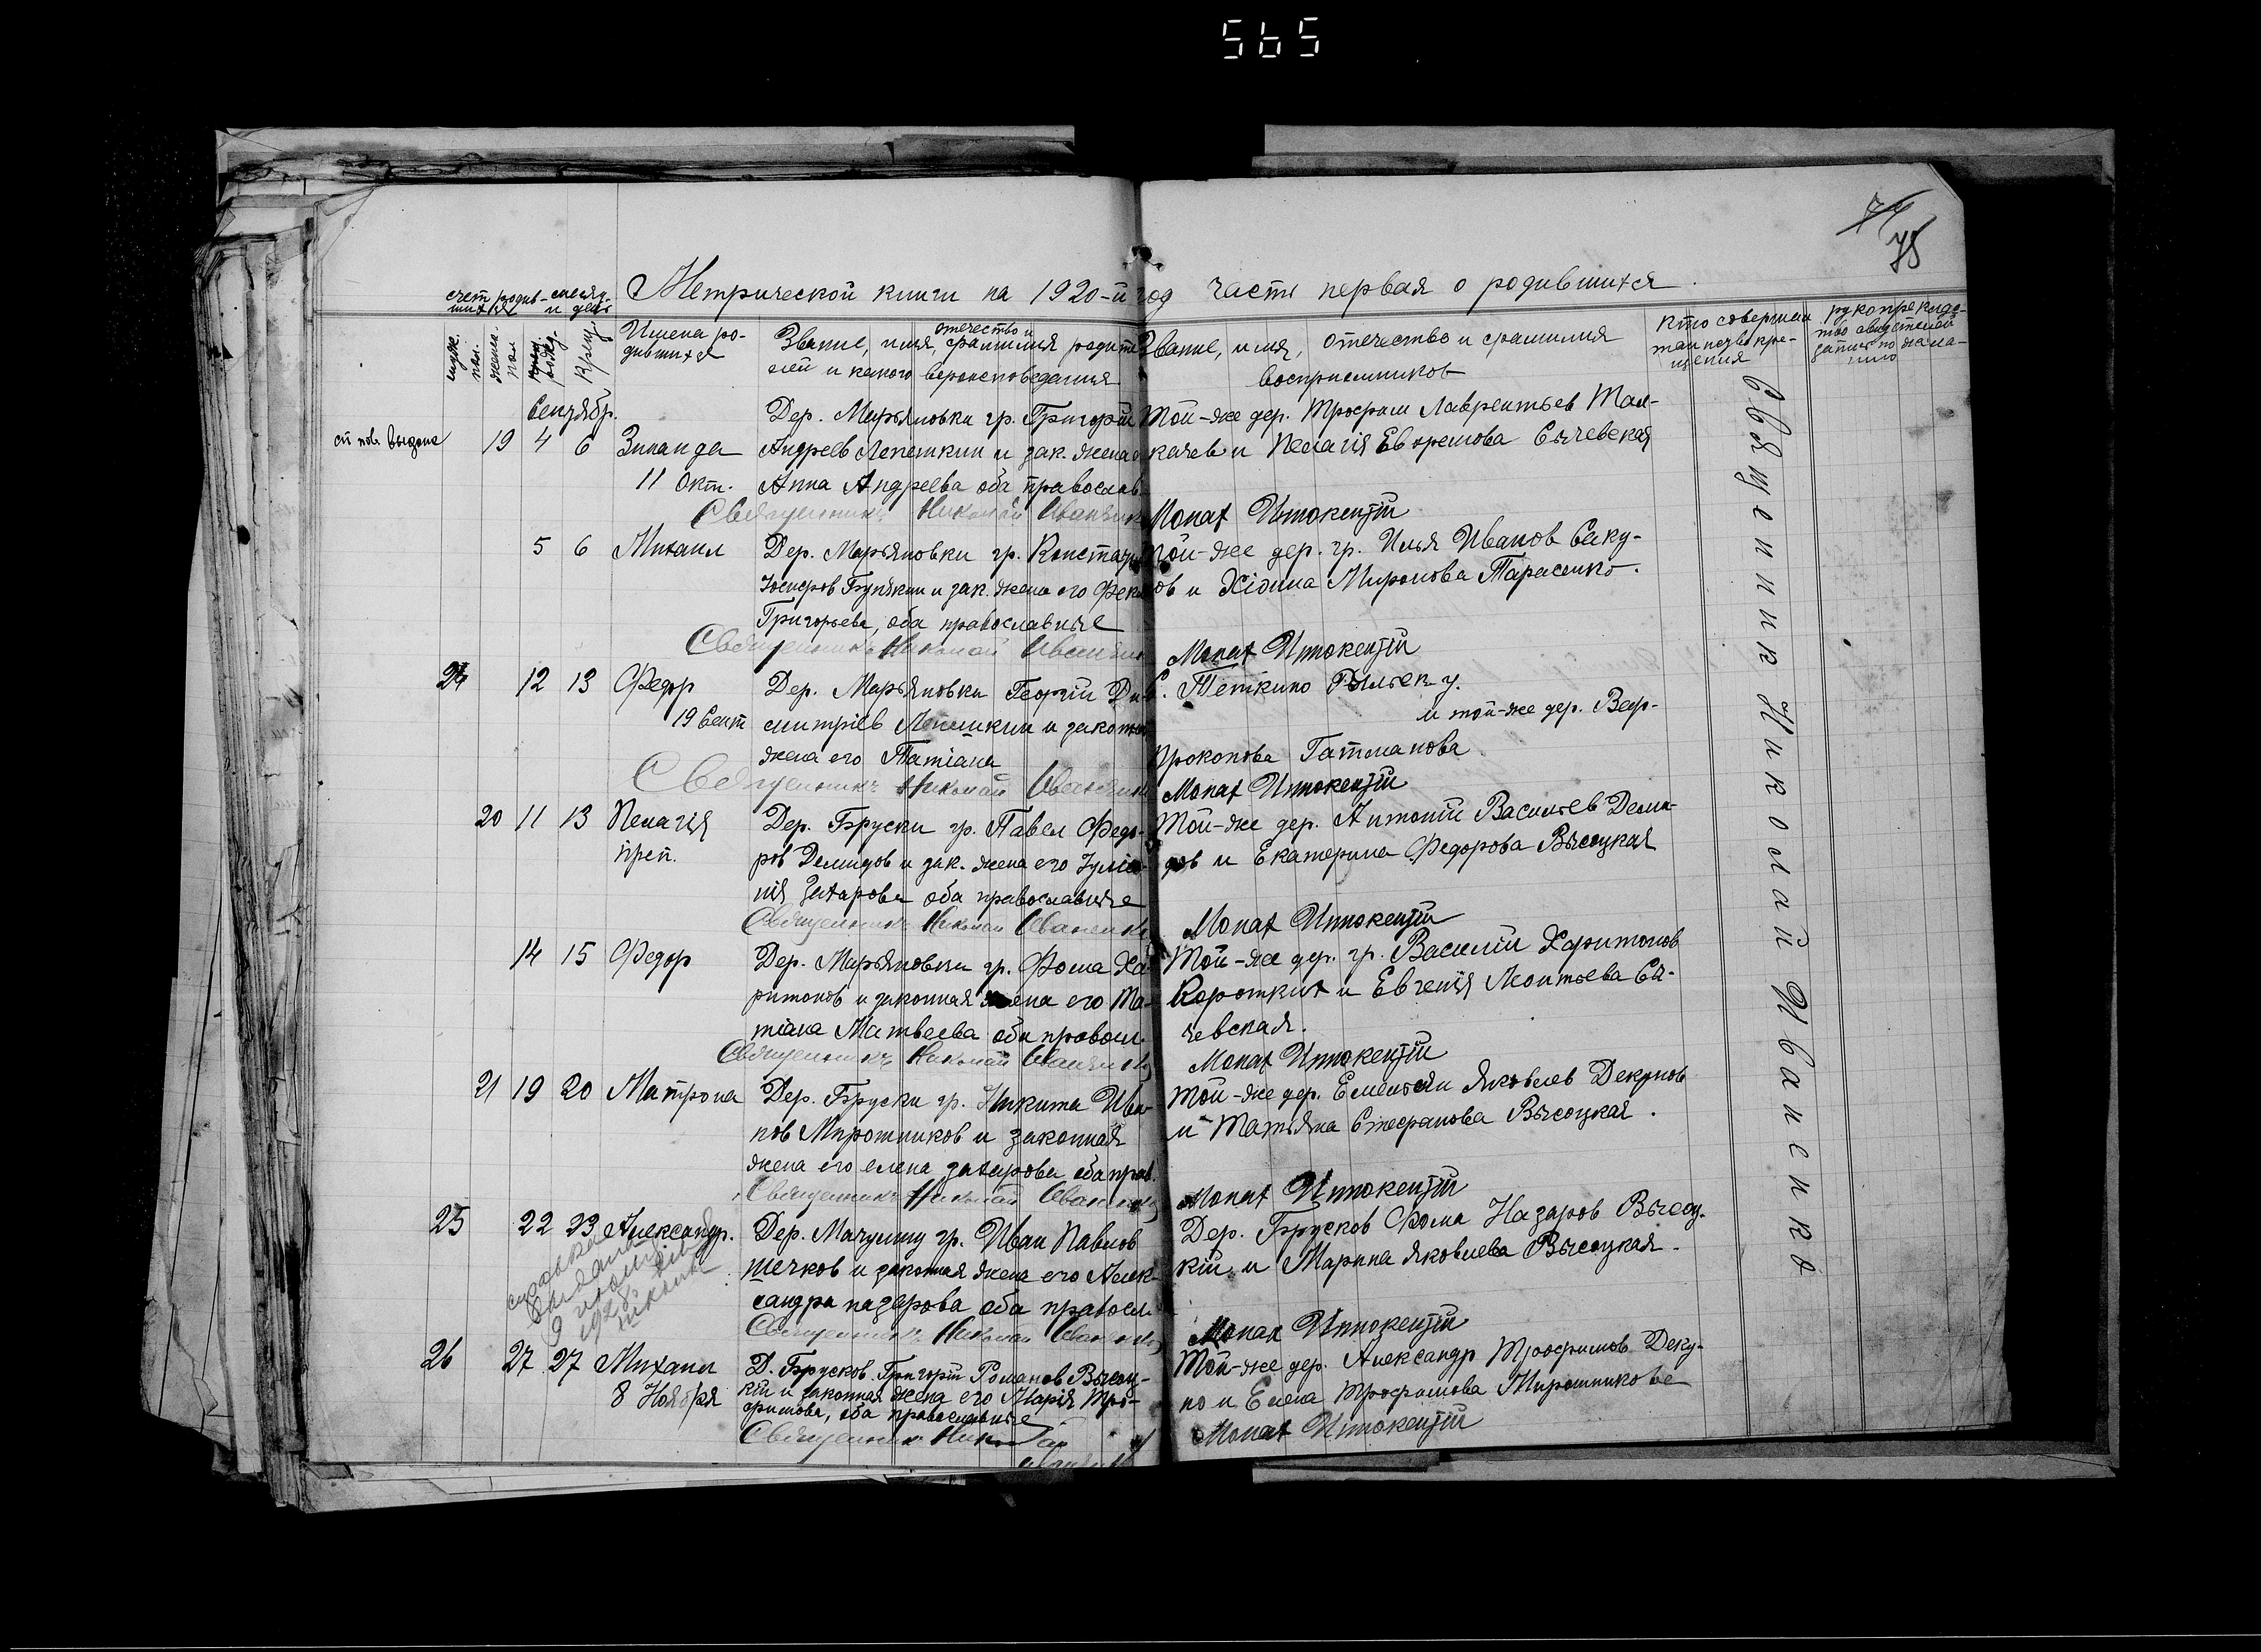 565
74
75
Метрической книги на 1920-й год часть первая о родившихся.
счет родив-
шихся
месяц
и день
муж.
пол.
женс.
пол
рожд.
крещ.
Имена ро-
дившихся
Звание, имя, отечество и фамилия родите
лей и какого вероисповедания
Звание, имя, отечество и фамилия
восприемников
Кто совершал
таинство кре-
щения
Сентябр.
19 4 6 Зинаида
11 Окт.
Дер. Марьяновки гр. Григорий
Андреев Лепешкин и зак. жена
Анна Андреева оба православ
Священникъ Николай Иваненко
Той-же дер. Трофим Лаврентьев
и Пелагія Евфремова Сычевская
Монах Инокентій
5 6 Михаил
Дер. Марьяновки гр. Констан
и зак. жена его Фек
Григорьева, оба православные
Священникъ Николай Иваненко
Той-же дер. гр. Илья Иванов Саку-
ов и Мироновa Тарасенко.
Монах Инокентій
24 12 13 Федор
19 Сент
Дер. Марьяновки Георгій Ди
митріев Лепешкин и законная
жена его Татіана
Священникъ Николай Иваненко
С. Теткино Рыльск у.
и той-же дер.
Прокопова Гатманова
Монах Инокентій
20 11 13 Пелагія
преп.
Дер. Бруски гр. Павел Федо-
ров Демидов и зак. жена его Іуліа-
нія Захарова оба православные
Священникъ Николай Иваненко
Той-же дер. Антоній Васильев Деми-
дов и Екатерина Федорова Высоцкая
Монах Инокентій
14 15 Федор
Дер. Марьяновки гр. Фома Ха-
ритонов и законная жена его Та-
тіана Матвеева оба правосл.
Священникъ Николай Иваненко
Той-же дер. гр. Василій Харитонов
Коротких и Евгенія Леонтьева Сы-
чевская.
Монах Инокентій
21 19 20 Матрона
Дер. Бруски гр. Никита Ива-
нов Мирошников и законная
жена его елена захарова оба прав.
Священникъ Николай Иваненко
Той-же дер. Емельян Яковлев Декунов
и Татьяна Стефанова Высоцкая.
Монах Инокентій
25 22 23 Александр.
справка
выдана
9 июля
1928
Дер. Мачулищ гр. Иван Павлов
и законная жена его Алек-
сандра назарова оба правосл.
Священникъ Николай Иваненко
Дер. Брусков Фома Назаров Высоц-
кій и Марина Яковлева Высоцкая.
Монах Инокентій
26 27 27 Михаил
8 Ноября
Д. Брусков Григорій Романов Высоц-
кій и законная жена его Марія Тро-
фимова, оба православные
Священник Николай
Иваненко
Той-же дер. Александр Трофимов Деку-
но и Елена Трофимова Мирошникова
Монах Инокентій
Священник Николай Иваненко